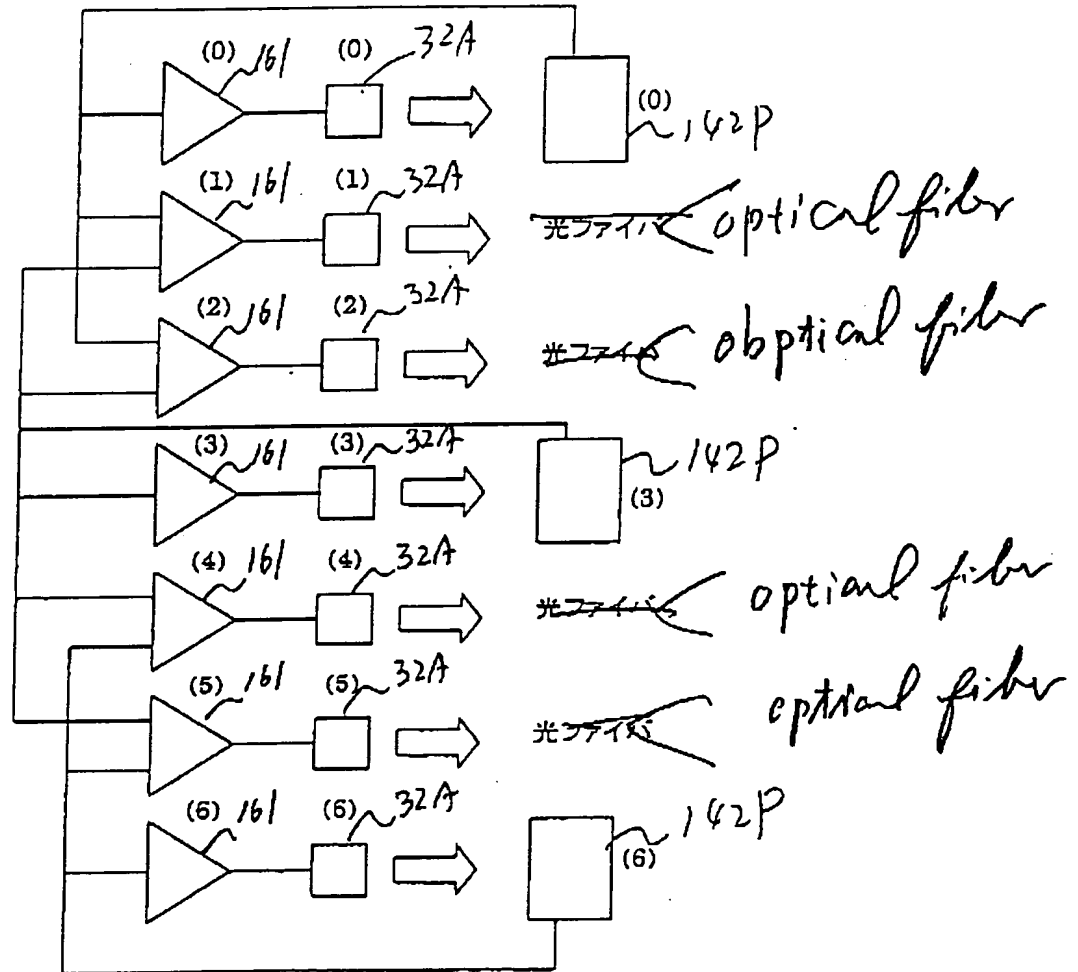 (0) 161 (0) 32A
(0)
142P
(1) 161 (1) 32A
光ファイバ optical fiber
(2) 161 (2) 32A
光ファイバ obptical fiber
(3) 161 (3) 32A
142P
(3)
(4) 161 (4) 32A
光ファイバ optical fiber
(5) 161 (5) 32A
光ファイバ optical fiber
(6) 161 (6) 32A
142P
(6)